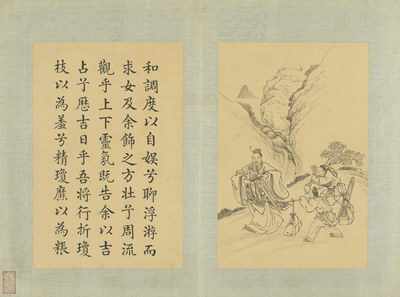 和調度以自娛兮聊浮游而
求女及余飾之方壯兮周流
觀乎上下靈氛既告余以吉
占兮歷吉日乎吾將行折瓊
枝以為羞兮精瓊爢以為粻